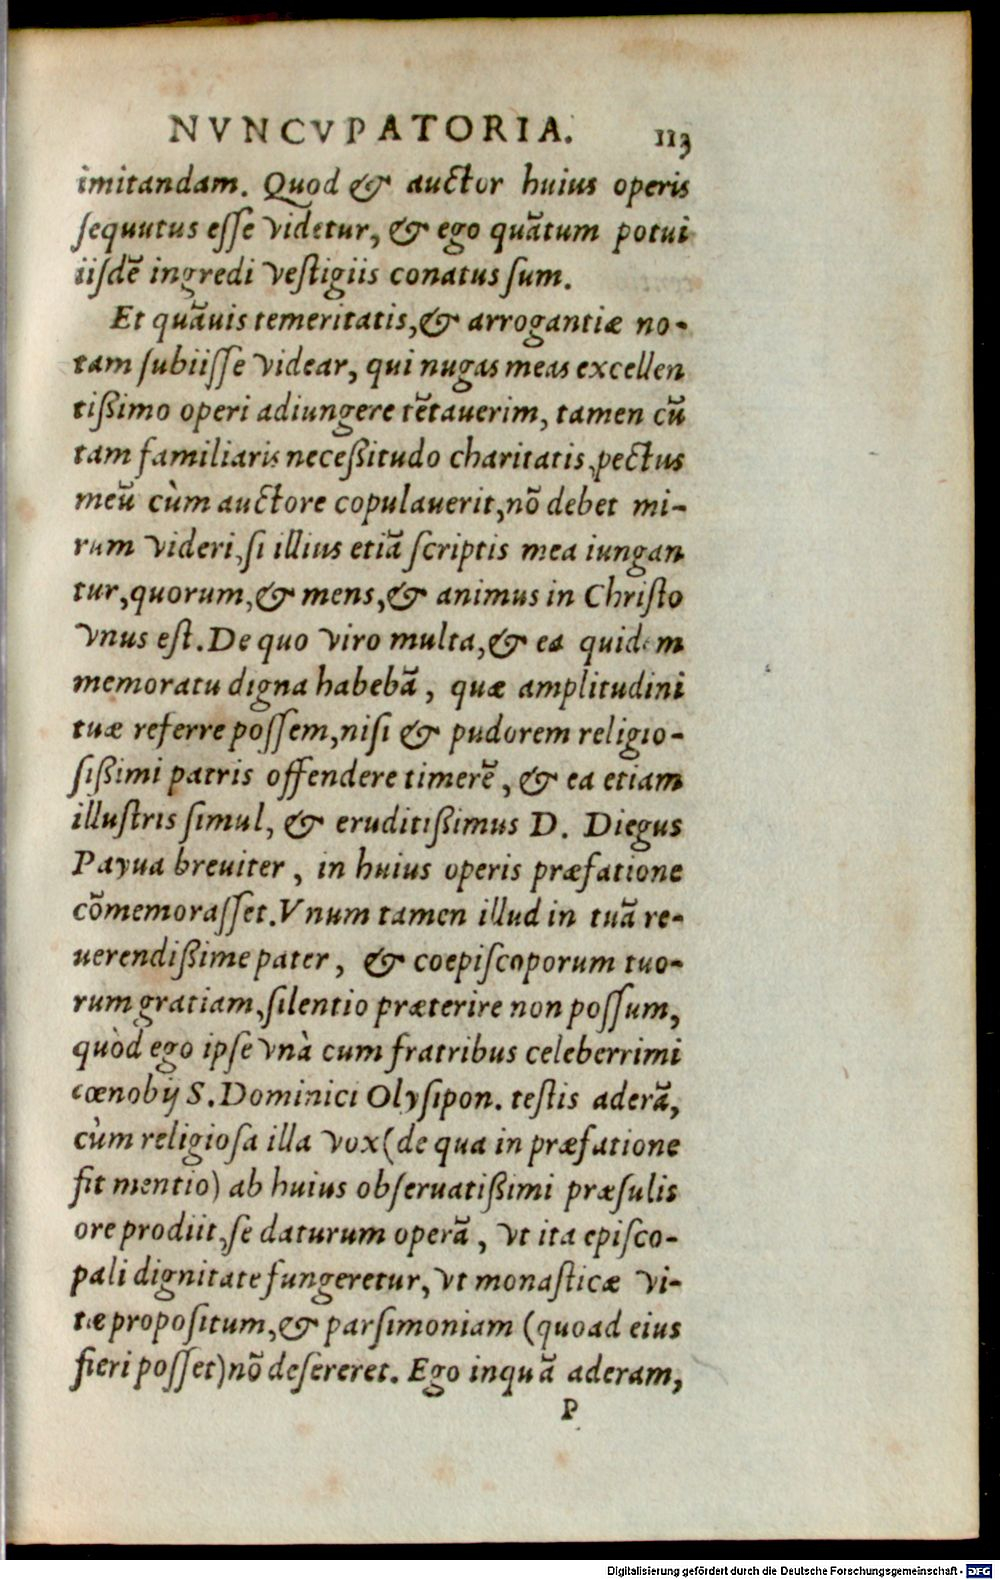 NVNCVPATORIA. 113
imitandam. Quod & auctor huius operis
ſequutus eſſe videtur, & ego quãtum potui
iiſdẽ ingredi veſtigiis conatus ſum.
Et quãuis temeritatis, & arrogantiæ no-
tam ſubiiſſe videar, qui nugas meas excellen
tißimo operi adiungere tẽtauerim, tamen cũ
tam familiaris neceßitudo charitatis, pectus
meũ cùm auctore copulauerit, nõ debet mi-
rum videri, ſi illius etiã ſcriptis mea iungan
tur, quorum, & mens, & animus in Chriſto
vnus eſt. De quo viro multa, & ea quidem
memoratu digna habebã, quæ amplitudini
tuæ referre poſſem, niſi & pudorem religio-
ſißimi patris offendere timerẽ, & ea etiam
illuſtris ſimul, & eruditißimus D. Diegus
Payua breuiter, in huius operis præfatione
cõmemoraſſet. Vnum tamen illud in tuã re-
uerendißime pater, & coepiſcoporum tuo-
rum gratiam, ſilentio præterire non poſſum,
quòd ego ipſe vnà cum fratribus celeberrimi
cœnobij S. Dominici Olyſipon. teſtis aderã,
cùm religioſa illa vox (de qua in præfatione
fit mentio) ab huius obſeruatißimi præſulis
ore prodiit, ſe daturum operã, vt ita epiſco-
pali dignitate fungeretur, vt monaſticæ vi-
tæ propoſitum, & parſimoniam (quoad eius
fieri poſſet) nõ deſereret. Ego inquã aderam,
P
Digitalisierung gefördert durch die Deutsche Forschungsgemeinschaft - DFG